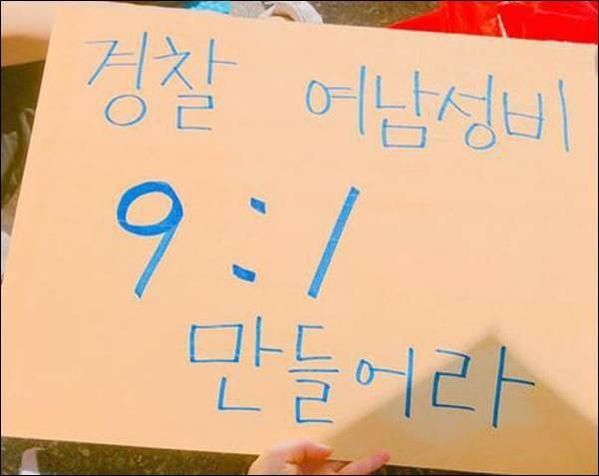 경찰 여남성비
9:1
만들어라